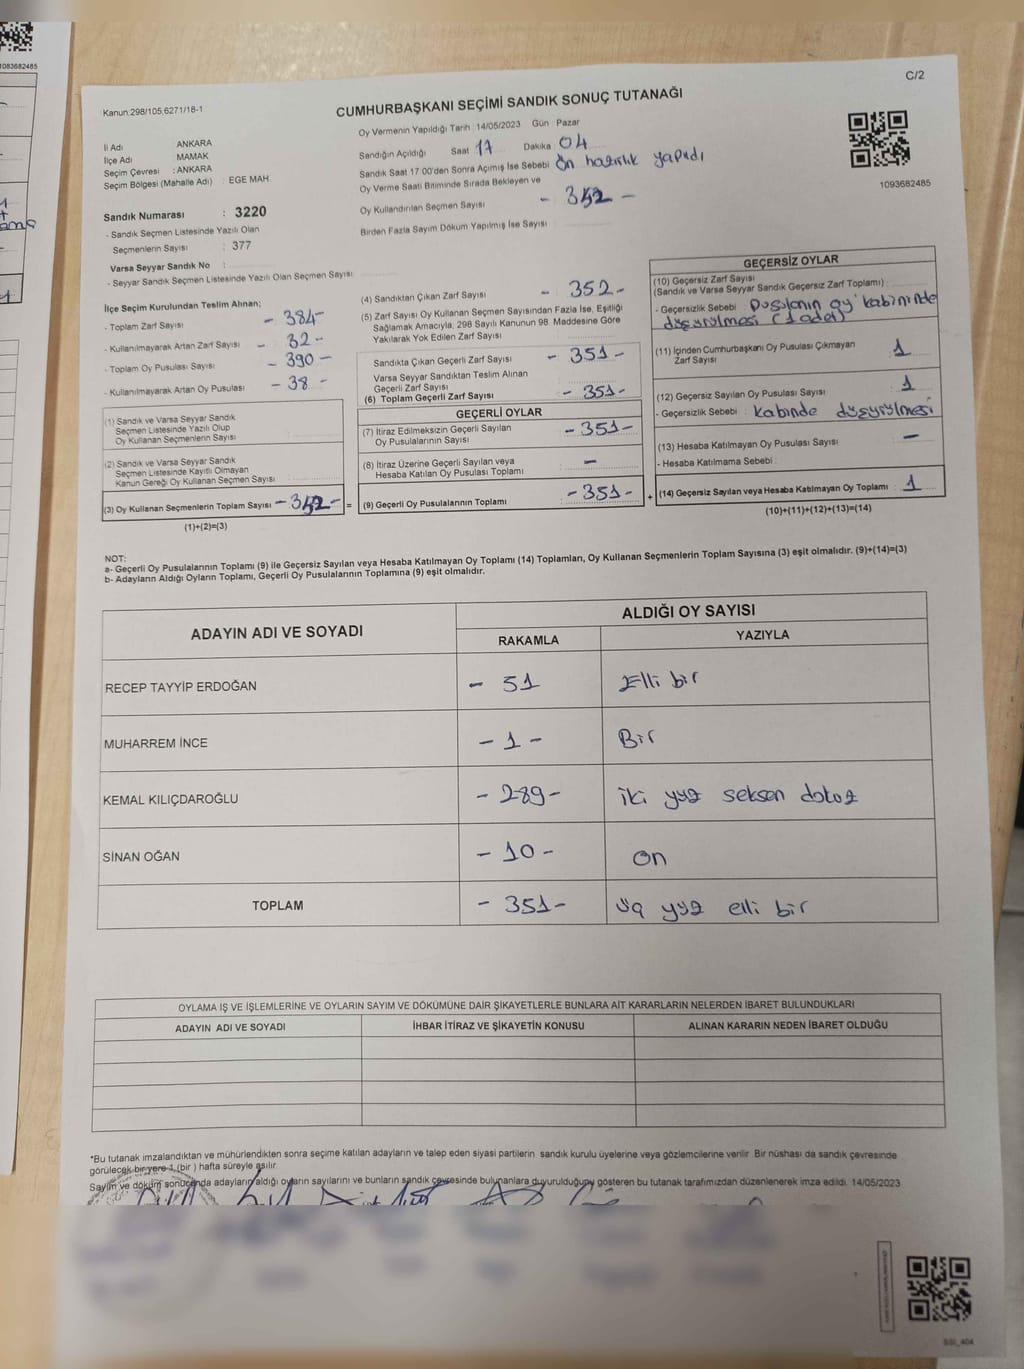 1083682485
C/2
Kanun:298/105,6271/18-1
CUMHURBAŞKANI SEÇİMİ SANDIK SONUÇ TUTANAĞI
İl Adı ANKARA
İlçe Adı MAMAK
Seçim Çevresi : ANKARA
Seçim Bölgesi (Mahalle Adı) : EGE MAH.
Oy Vermenin Yapıldığı Tarih : 14/05/2023 Gün : Pazar
Sandığın Açıldığı Saat 17 Dakika 04
Sandık Saat 17 00'den Sonra Açımış İse Sebebi Ön hazırlık yapıldı
Oy Verme Saati Bitiminde Sırada Bekleyen ve
Oy Kullandırılan Seçmen Sayısı - 352 -
Birden Fazla Sayım Döküm Yapılmış İse Sayısı
1093682485
Sandık Numarası : 3220
- Sandık Seçmen Listesinde Yazılı Olan
Seçmenlerin Sayısı : 377
Varsa Seyyar Sandık No :
- Seyyar Sandık Seçmen Listesinde Yazılı Olan Seçmen Sayısı
İlçe Seçim Kurulundan Teslim Alınan;
- Toplam Zarf Sayısı - 384-
- Kullanılmayarak Artan Zarf Sayısı - 32-
- Toplam Oy Pusulası Sayısı - 390-
- Kullanılmayarak Artan Oy Pusulası - 38 -
(1) Sandık ve Varsa Seyyar Sandık
Seçmen Listesinde Yazılı Olup
Oy Kullanan Seçmenlerin Sayısı
(2) Sandık ve Varsa Seyyar Sandık
Seçmen Listesinde Kayıtlı Olmayan
Kanun Gereği Oy Kullanan Seçmen Sayısı
(3) Oy Kullanan Seçmenlerin Toplam Sayısı - 352 - =
(1)+(2)=(3)
(4) Sandıktan Çıkan Zarf Sayısı - 352-
(5) Zarf Sayısı Oy Kullanan Seçmen Sayısından Fazla İse, Eşitliği
Sağlamak Amacıyla, 298 Sayılı Kanunun 98. Maddesine Göre
Yakılarak Yok Edilen Zarf Sayısı
Sandıkta Çıkan Geçerli Zarf Sayısı - 351 -
Varsa Seyyar Sandıktan Teslim Alınan
Geçerli Zarf Sayısı
(6) Toplam Geçerli Zarf Sayısı - 351-
GEÇERLİ OYLAR
(7) İtiraz Edilmeksizin Geçerli Sayılan
Oy Pusulalarının Sayısı - 351-
(8) İtiraz Üzerine Geçerli Sayılan veya
Hesaba Katılan Oy Pusulası Toplamı -
(9) Geçerli Oy Pusulalarının Toplamı - 351- +
GEÇERSİZ OYLAR
(10) Geçersiz Zarf Sayısı
(Sandık ve Varsa Seyyar Sandık Geçersiz Zarf Toplamı) :
- Geçersizlik Sebebi : Pusulanın oy kabininde
düşürülmesi (1 adet)
(11) İçinden Cumhurbaşkanı Oy Pusulası Çıkmayan
Zarf Sayısı 1
(12) Geçersiz Sayılan Oy Pusulası Sayısı : 1
- Geçersizlik Sebebi : kabinde düşürülmesi
(13) Hesaba Katılmayan Oy Pusulası Sayısı : -
- Hesaba Katılmama Sebebi :
(14) Geçersiz Sayılan veya Hesaba Katılmayan Oy Toplamı : 1
(10)+(11)+(12)+(13)=(14)
NOT:
a- Geçerli Oy Pusulalarının Toplamı (9) ile Geçersiz Sayılan veya Hesaba Katılmayan Oy Toplamı (14) Toplamları, Oy Kullanan Seçmenlerin Toplam Sayısına (3) eşit olmalıdır. (9)+(14)=(3)
b- Adayların Aldığı Oyların Toplamı, Geçerli Oy Pusulalarının Toplamına (9) eşit olmalıdır.
ADAYIN ADI VE SOYADI ALDIĞI OY SAYISI
RAKAMLA YAZIYLA
RECEP TAYYİP ERDOĞAN - 51 Elli bir
MUHARREM İNCE - 1 - Bir
KEMAL KILIÇDAROĞLU - 289- iki yüz seksen dokuz
SİNAN OĞAN - 10 - on
TOPLAM - 351- üç yüz elli bir
OYLAMA İŞ VE İŞLEMLERİNE VE OYLARIN SAYIM VE DÖKÜMÜNE DAİR ŞİKAYETLERLE BUNLARA AİT KARARLARIN NELERDEN İBARET BULUNDUKLARI
ADAYIN ADI VE SOYADI İHBAR İTİRAZ VE ŞİKAYETİN KONUSU ALINAN KARARIN NEDEN İBARET OLDUĞU
*Bu tutanak imzalandıktan ve mühürlendikten sonra seçime katılan adayların ve talep eden siyasi partilerin sandık kurulu üyelerine veya gözlemcilerine verilir. Bir nüshası da sandık çevresinde
görülecek bir yere 1 (bir ) hafta süreyle asılır.
Sayım ve döküm sonucunda adayların aldığı oyların sayılarını ve bunların sandık çevresinde bulunanlara duyurulduğunu gösteren bu tutanak tarafımızdan düzenlenerek imza edildi. 14/05/2023
SSI_404